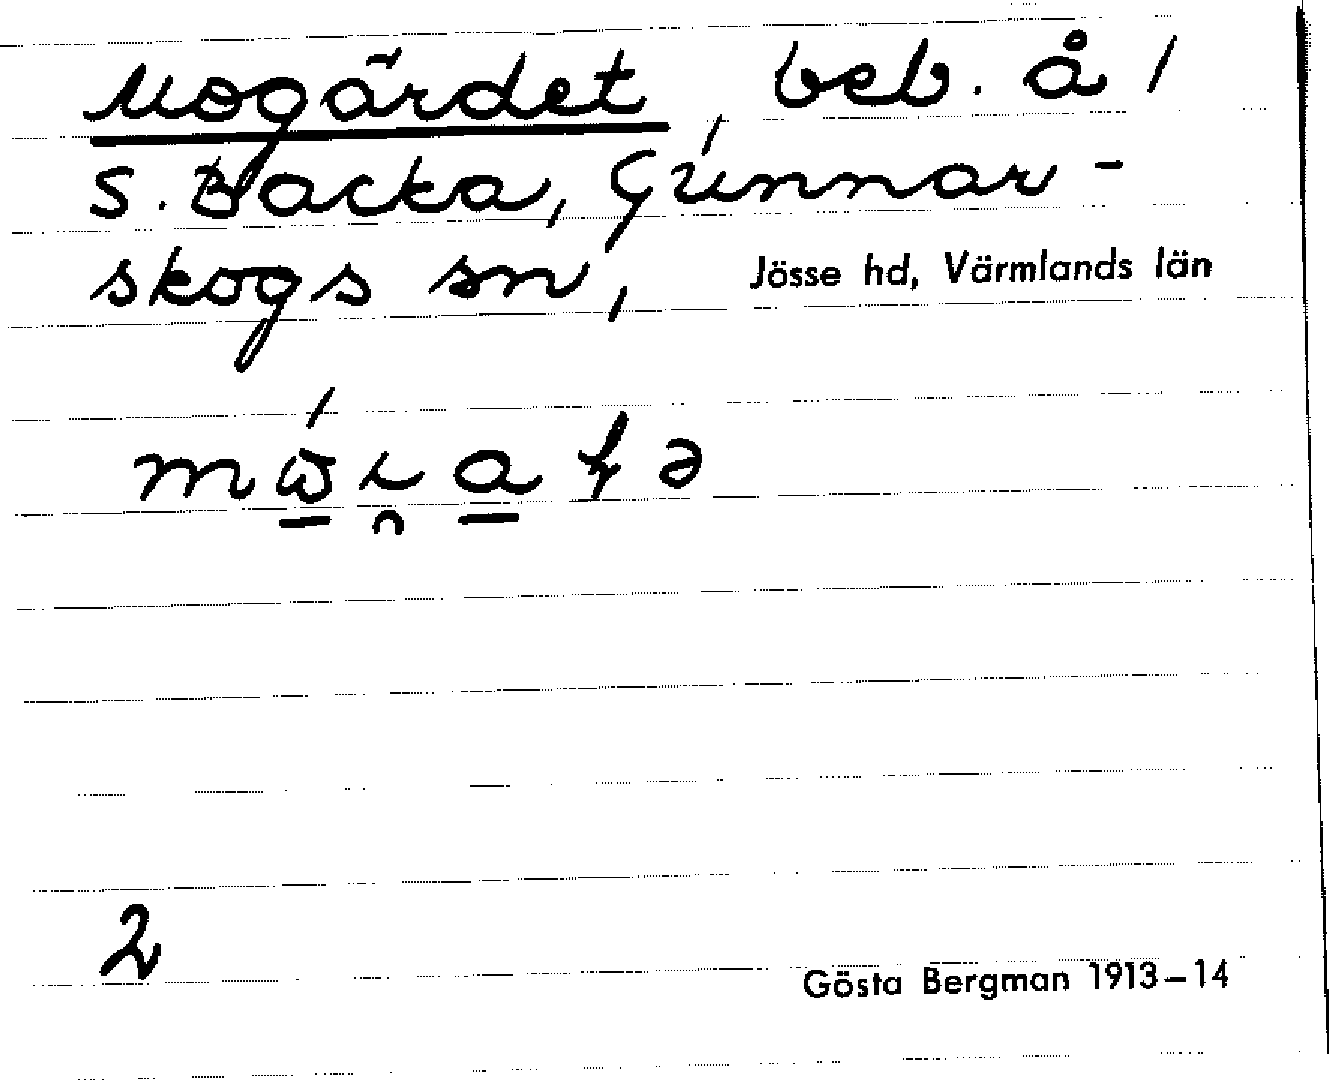 Mogärdet, beb. å /
S. Backa, Gunnar-
skogs sn, Jösse hd, Värmlands län
2
Gösta Bergman 1913–14